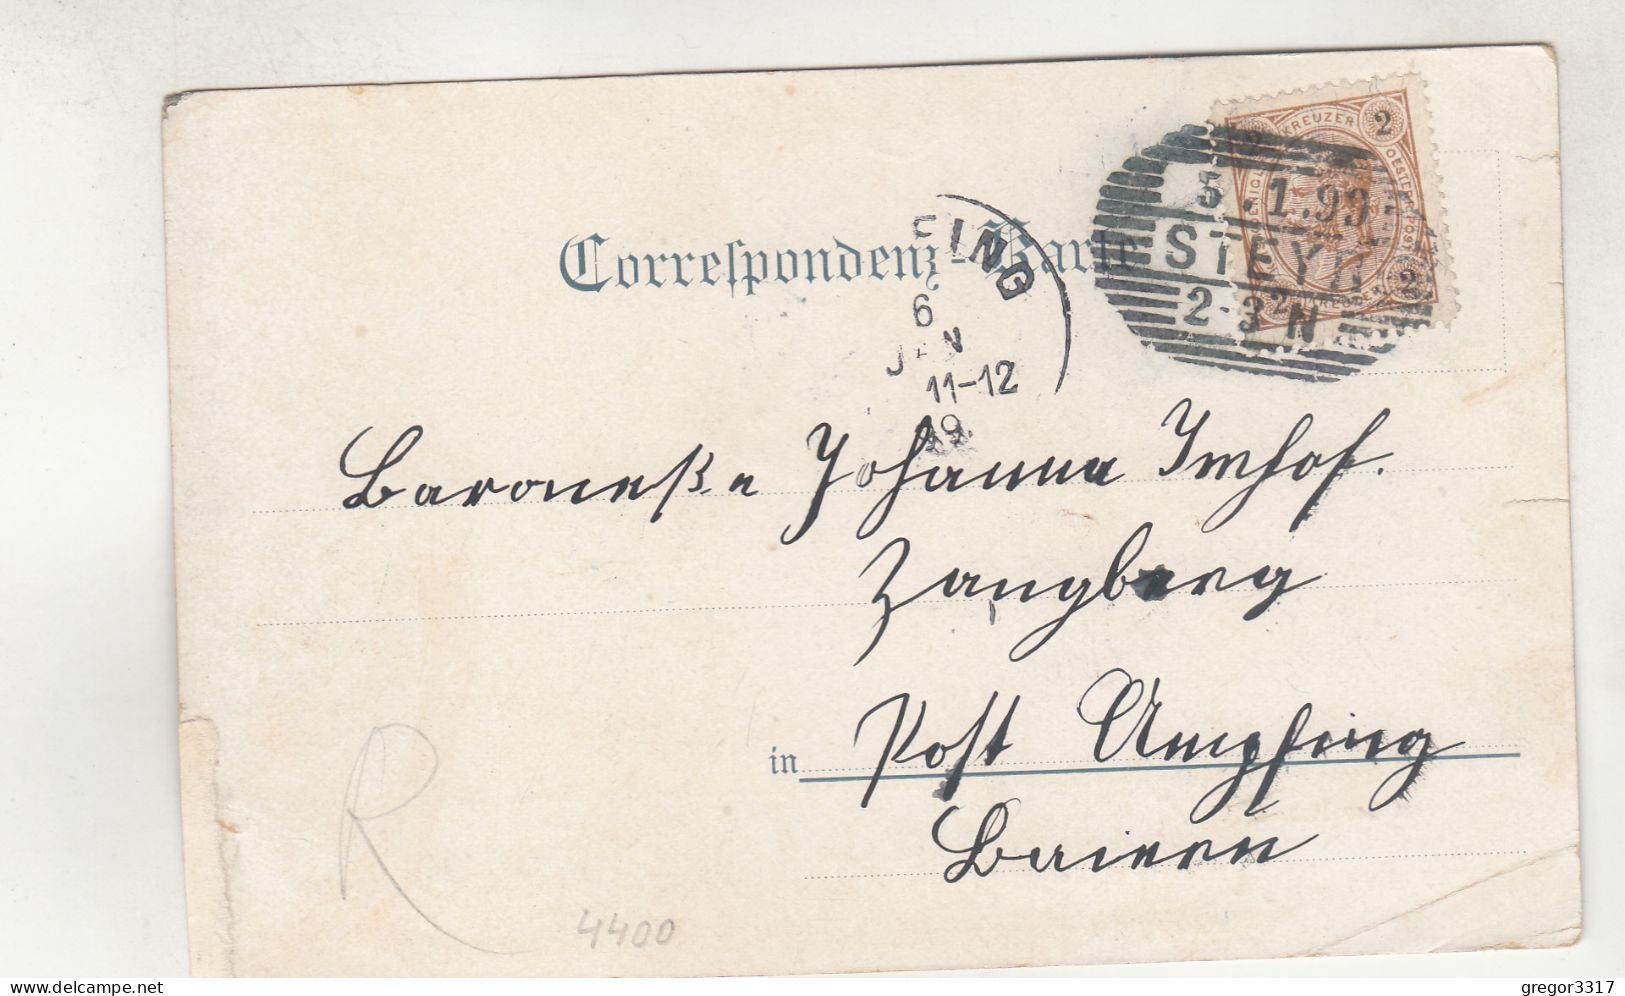 2 KREUZER 2
5.1.99
STEYR
2-3 N
2
Correspondenz-Karte
FING
6
JAN
11-12
99
Baroneße Johanna Imhof.
Zangberg
in Post Ampfing
Baiern
R
4400
www.delcampe.net
gregor3317